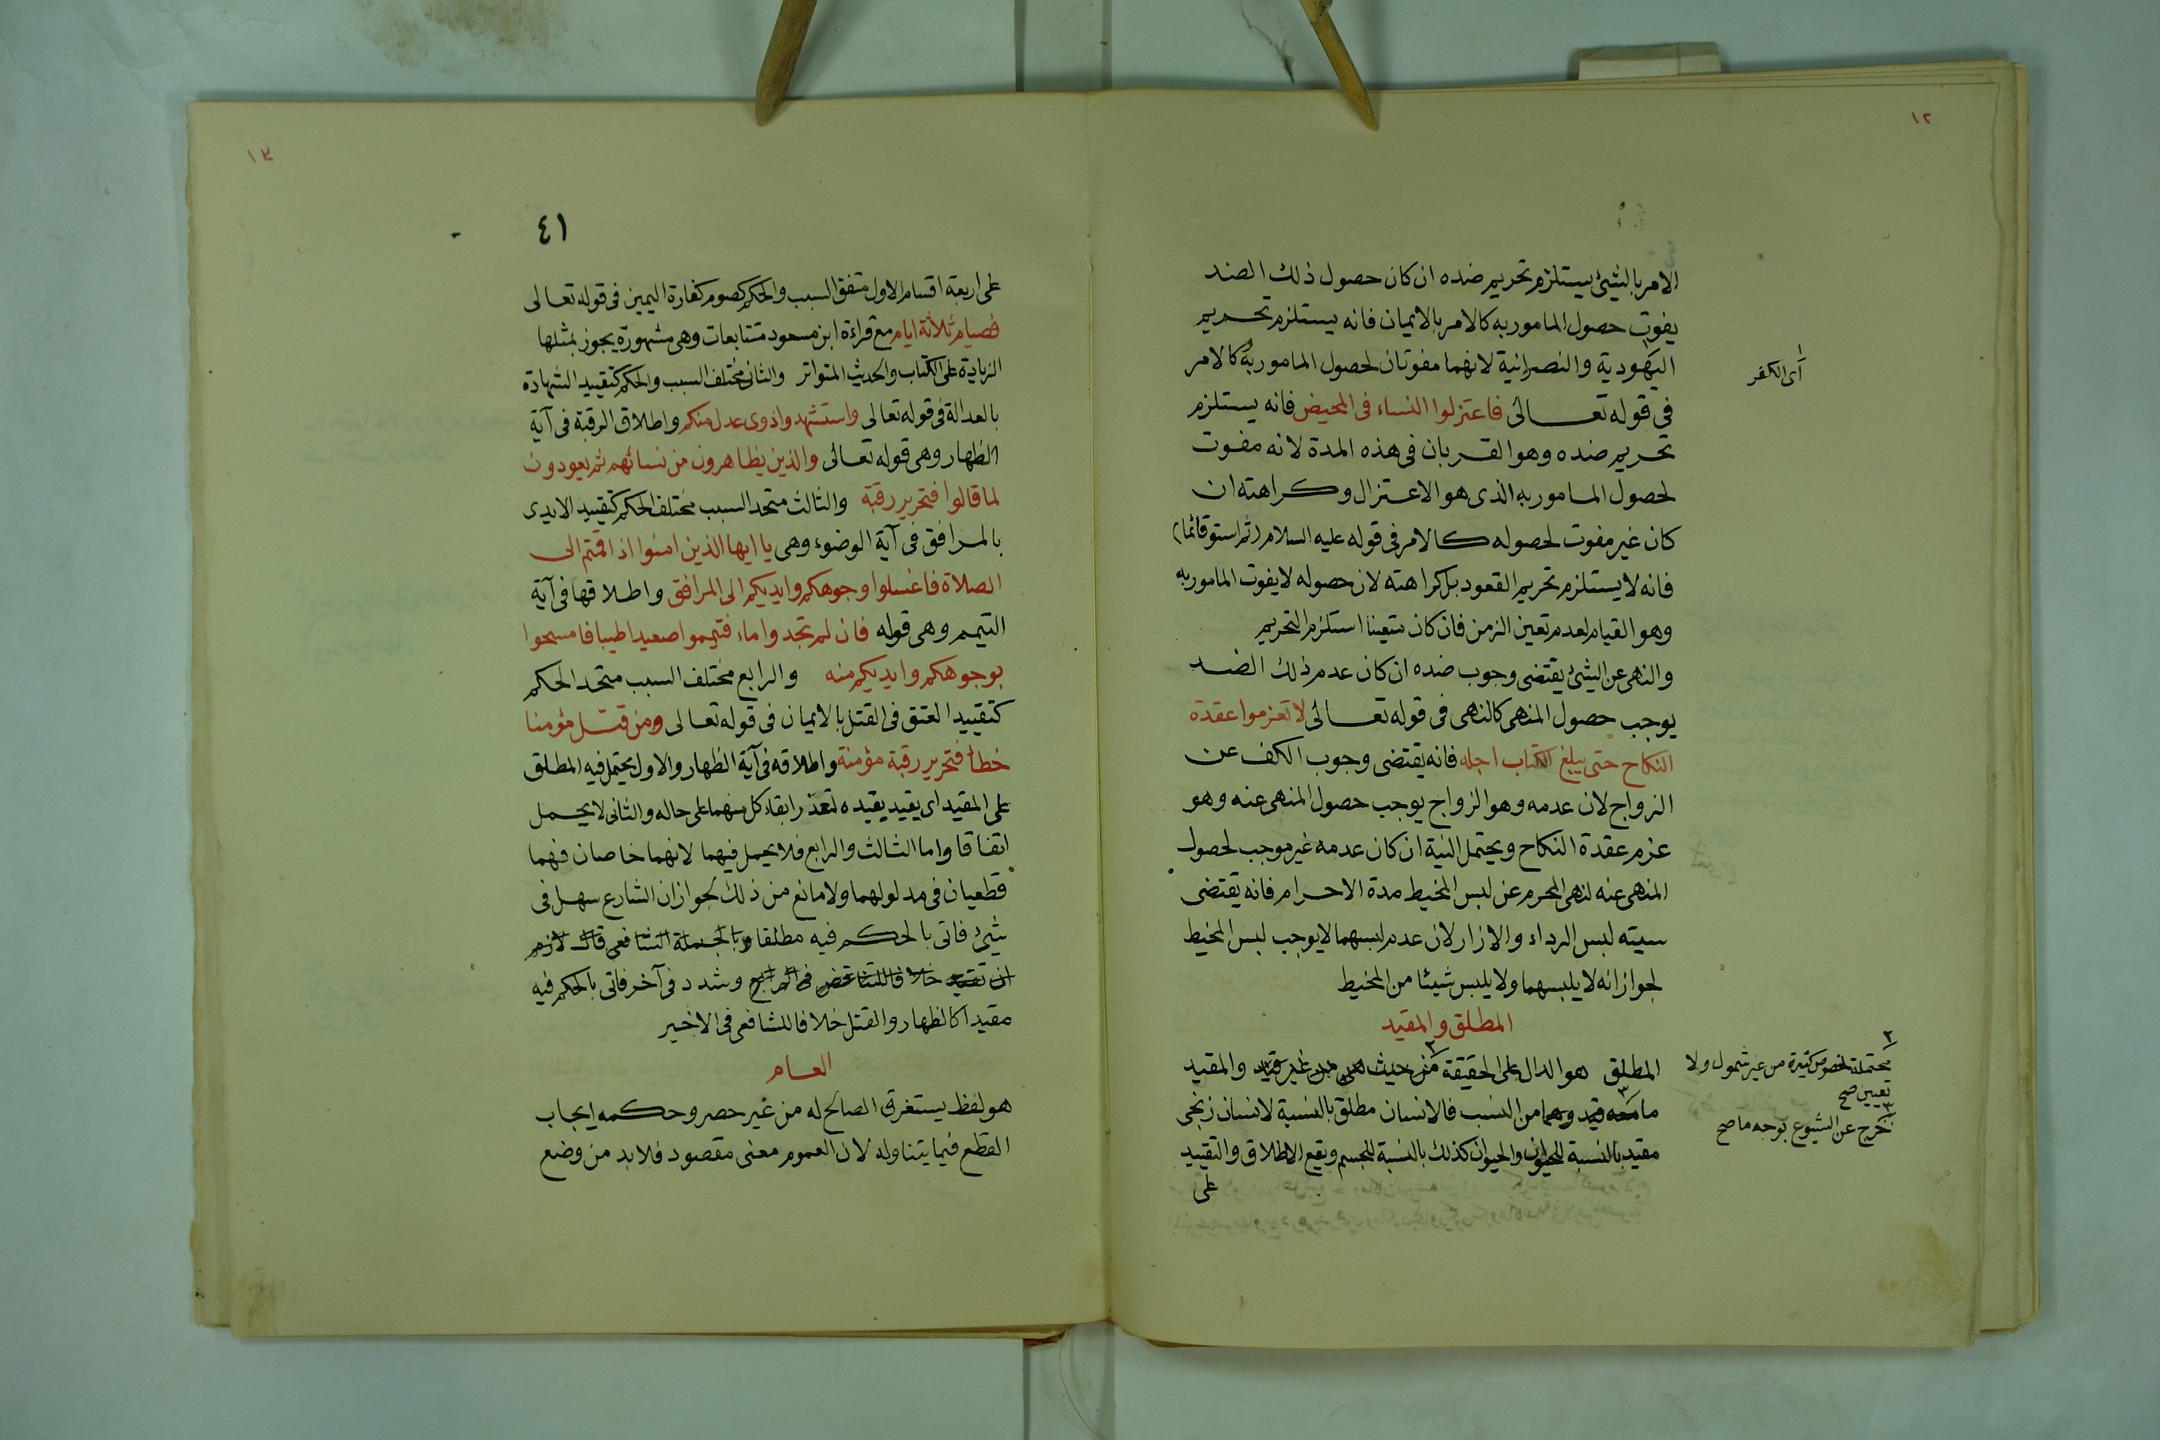 ١٢
الامر بالشيئ يستلزم تحريم ضده ان كان حصول ذلك الضد
يفوت حصول المامور به كالامر بالايمان فانه يستلزم تحريم
اليهودية والنصرانية لانهما مفوتان لحصول المامور به كالامر
اى الكفر
فى قوله تعالى فاعتزلوا النساء فى المحيض فانه يستلزم
تحريم ضده وهو القربان فى هذه المدة لانه مفوت
لحصول المامور به الذى هو الاعتزال وكراهته ان
كان غير مفوت لحصوله كالامر فى قوله عليه السلام (ثم استو قائما)
فانه لا يستلزم تحريم القعود بل كراهته لان حصوله لا يفوت المامور به
وهو القيام لعدم تعين الزمن فان كان متعينا استلزم التحريم
والنهى عن الشيئ يقتضى وجوب ضده ان كان عدم ذلك الضد
يوجب حصول المنهى كالنهى فى قوله تعالى لا تعزموا عقدة
النكاح حتى يبلغ الكتاب اجله فانه يقتضى وجوب الكف عن
الزواج لان عدمه وهو الزواج يوجب حصول المنهى عنه وهو
عزم عقدة النكاح ويحتمل النية ان كان عدمه غير موجب لحصول
المنهى عنه لنهى المحرم عن لبس المخيط مدة الاحرام فانه يقتضى
سيته لبس الرداء والازار لان عدم لبسهما لا يوجب لبس المخيط
لجواز انه لا يلبسهما ولا يلبس شيئا من المخيط
المطلق والمقيد
المطلق هو الدال على الحقيقة ٢ من حيث هى من غير قيد والمقيد
٢ محتملة لحصص كثيرة من غير شمول ولا
تعيين صح
ما ٣ معه قيد وهما من النسب فالانسان مطلق بالنسبة لانسان زنجى
٣ خرج عن الشيوع بوجه ما صح
مقيد بالنسبة للحيوان والحيوان كذلك بالنسبة للجسم ويقع الاطلاق والتقييد
على
١٣
٤١
على اربعة اقسام الاول متفق السبب والحكم كصوم كفارة اليمين فى قوله تعالى
فصيام ثلاثة ايام مع قراءة ابن مسعود متتابعات وهى مشهورة يجوز بمثلها
الزيادة على الكتاب والحديث المتواتر والثانى مختلف السبب والحكم كتقييد الشهادة
بالعدالة فى قوله تعالى واستشهدوا ذوى عدل منكم واطلاق الرقبة فى آية
الظهار وهى قوله تعالى والذين يظاهرون من نسائهم ثم يعودون
لما قالوا فتحرير رقبة والثالث متحد السبب مختلف الحكم كتقييد الايدى
بالمرافق فى آية الوضوء وهى يا ايها الذين امنوا اذا قمتم الى
الصلاة فاغسلوا وجوهكم وايديكم الى المرافق واطلاقها فى آية
التيمم وهى قوله فان لم تجدوا ماء فتيمموا صعيدا طيبا فامسحوا
بوجوهكم وايديكم منه والرابع مختلف السبب متحد الحكم
كتقييد العتق فى القتل بالايمان فى قوله تعالى ومن قتل مؤمنا
خطأ فتحرير رقبة مؤمنة واطلاقه فى آية الظهار والاول يحتمل فيه المطلق
على المقيد اى يقيد بقيده لتعذر ابقاء كل منهما على حاله والثانى لا يحمل
اتفاقا واما الثالث والرابع فلا يحمل فيهما لانهما خاصان فهما
قطعيان فى مدلولهما ولا مانع من ذلك لجواز ان الشارع سهل فى
شئ فاتى بالحكم فيه مطلقا وبالجملة الشافعى قال لازم
ان تقييد خلافا للشافعى فى الرابع وشدد فى آخر فاتى بالحكم فيه
مقيدا كالظهار والقتل خلافا للشافعى فى الاخير
العام
هو لفظ يستغرق الصالح له من غير حصر وحكمه ايجاب
القطع فيما يتناوله لان العموم معنى مقصود فلابد من وضع